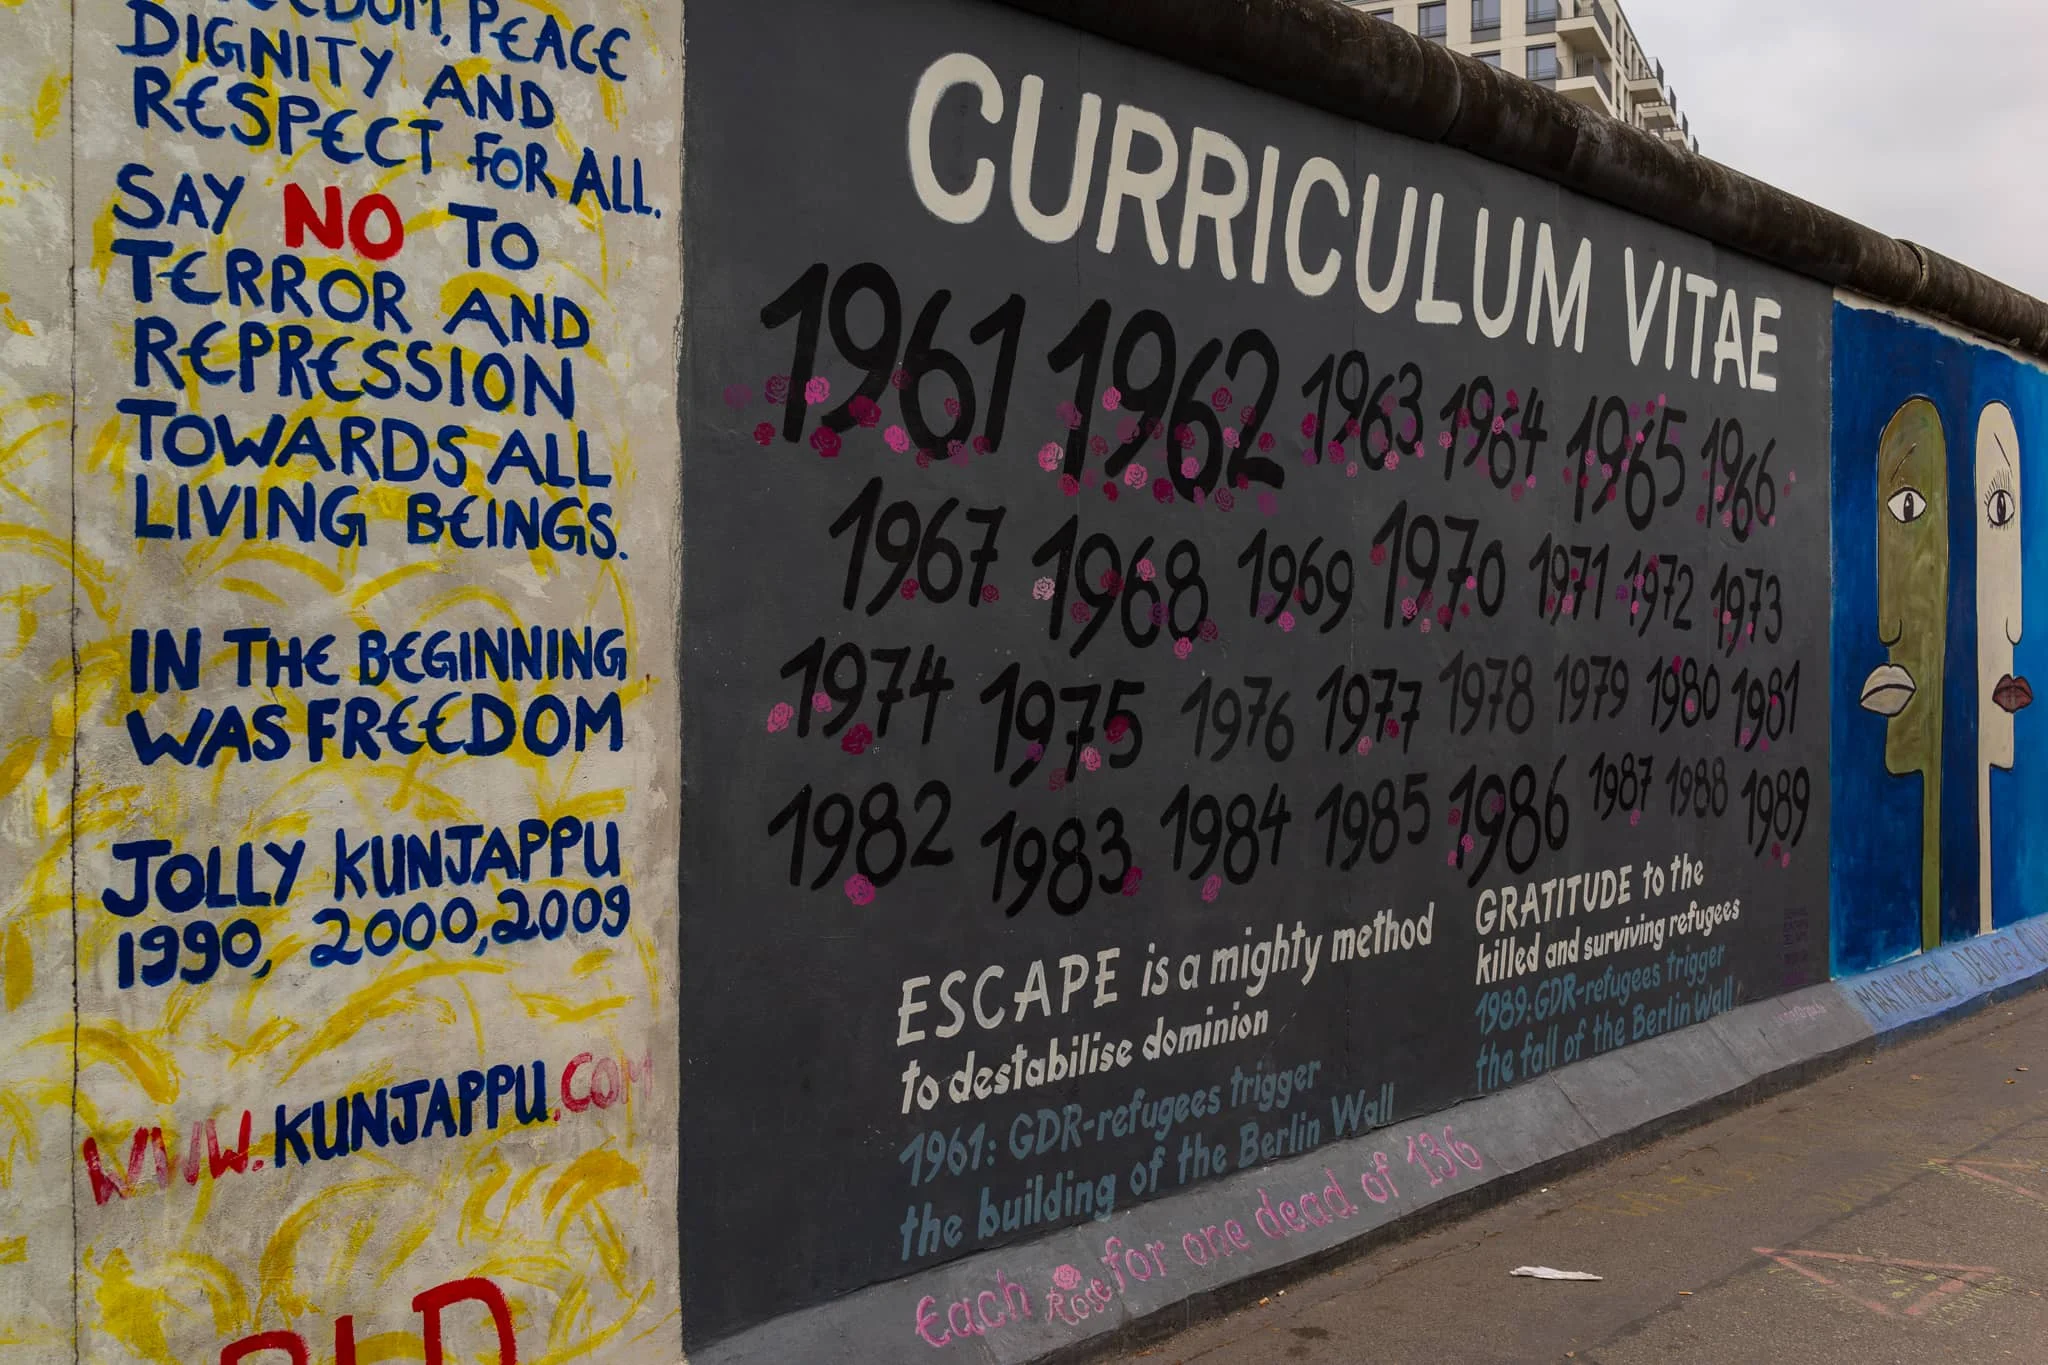 PEACE
DIGNITY AND
RESPECT FOR ALL.
SAY NO TO
TERROR AND
REPRESSION
TOWARDS ALL
LIVING BEINGS.
IN THE BEGINNING
WAS FREEDOM
JOLLY KUNJAPPU
1990, 2000, 2009
WWW.KUNJAPPU.COM
CURRICULUM VITAE
1961 1962 1963 1964 1965 1966
1967 1968 1969 1970 1971 1972 1973
1974 1975 1976 1977 1978 1979 1980 1981
1982 1983 1984 1985 1986 1987 1988 1989
ESCAPE is a mighty method
to destabilise dominion
1961: GDR-refugees trigger
the building of the Berlin Wall
GRATITUDE to the
killed and surviving refugees
1989: GDR-refugees trigger
the fall of the Berlin Wall
Each Rose for one dead of 136